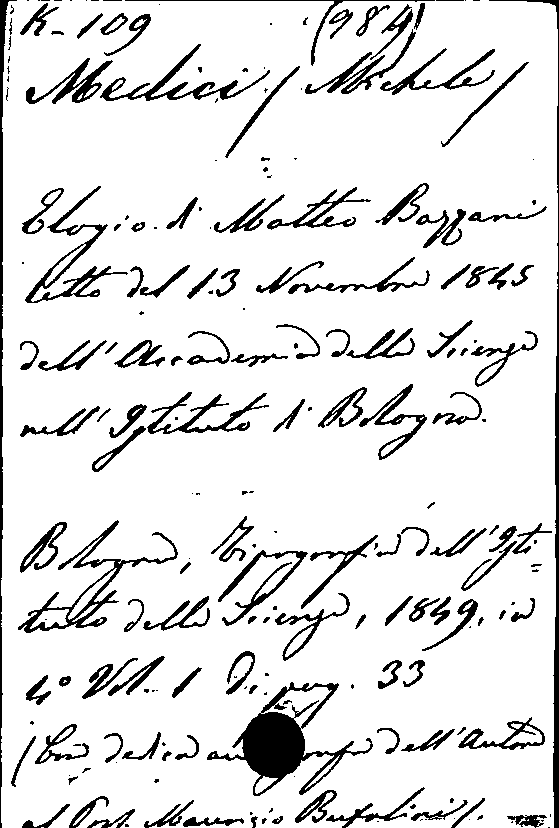 K-109 (984)
Medici / Michele /
Elogio di Matteo Bazzani
letto del 13 Novembre 1845
dell'Accademia delle Scienze
nell'Istituto di Bologna.
Bologna, Tipografia dell'Isti=
tuto delle Scienze, 1849, in
4° Vol. 1 Di pag. 33
(Con dedica dell'Autore
al Prof. Maurizio Bufalini).